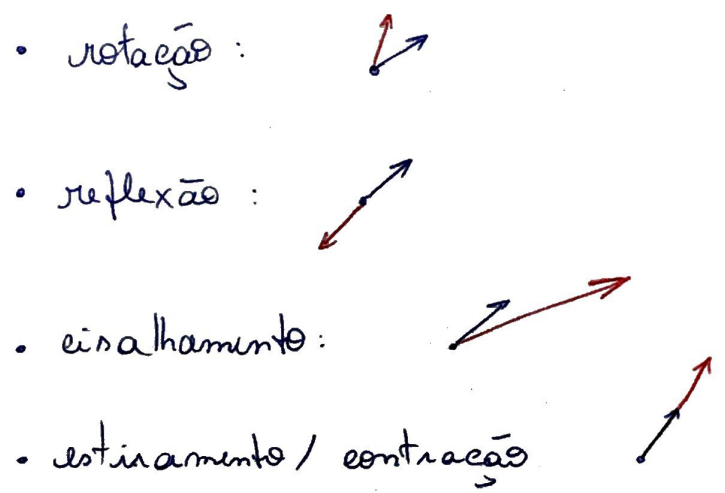 • rotação:
• reflexão:
• cisalhamento:
• estiramento/ contração